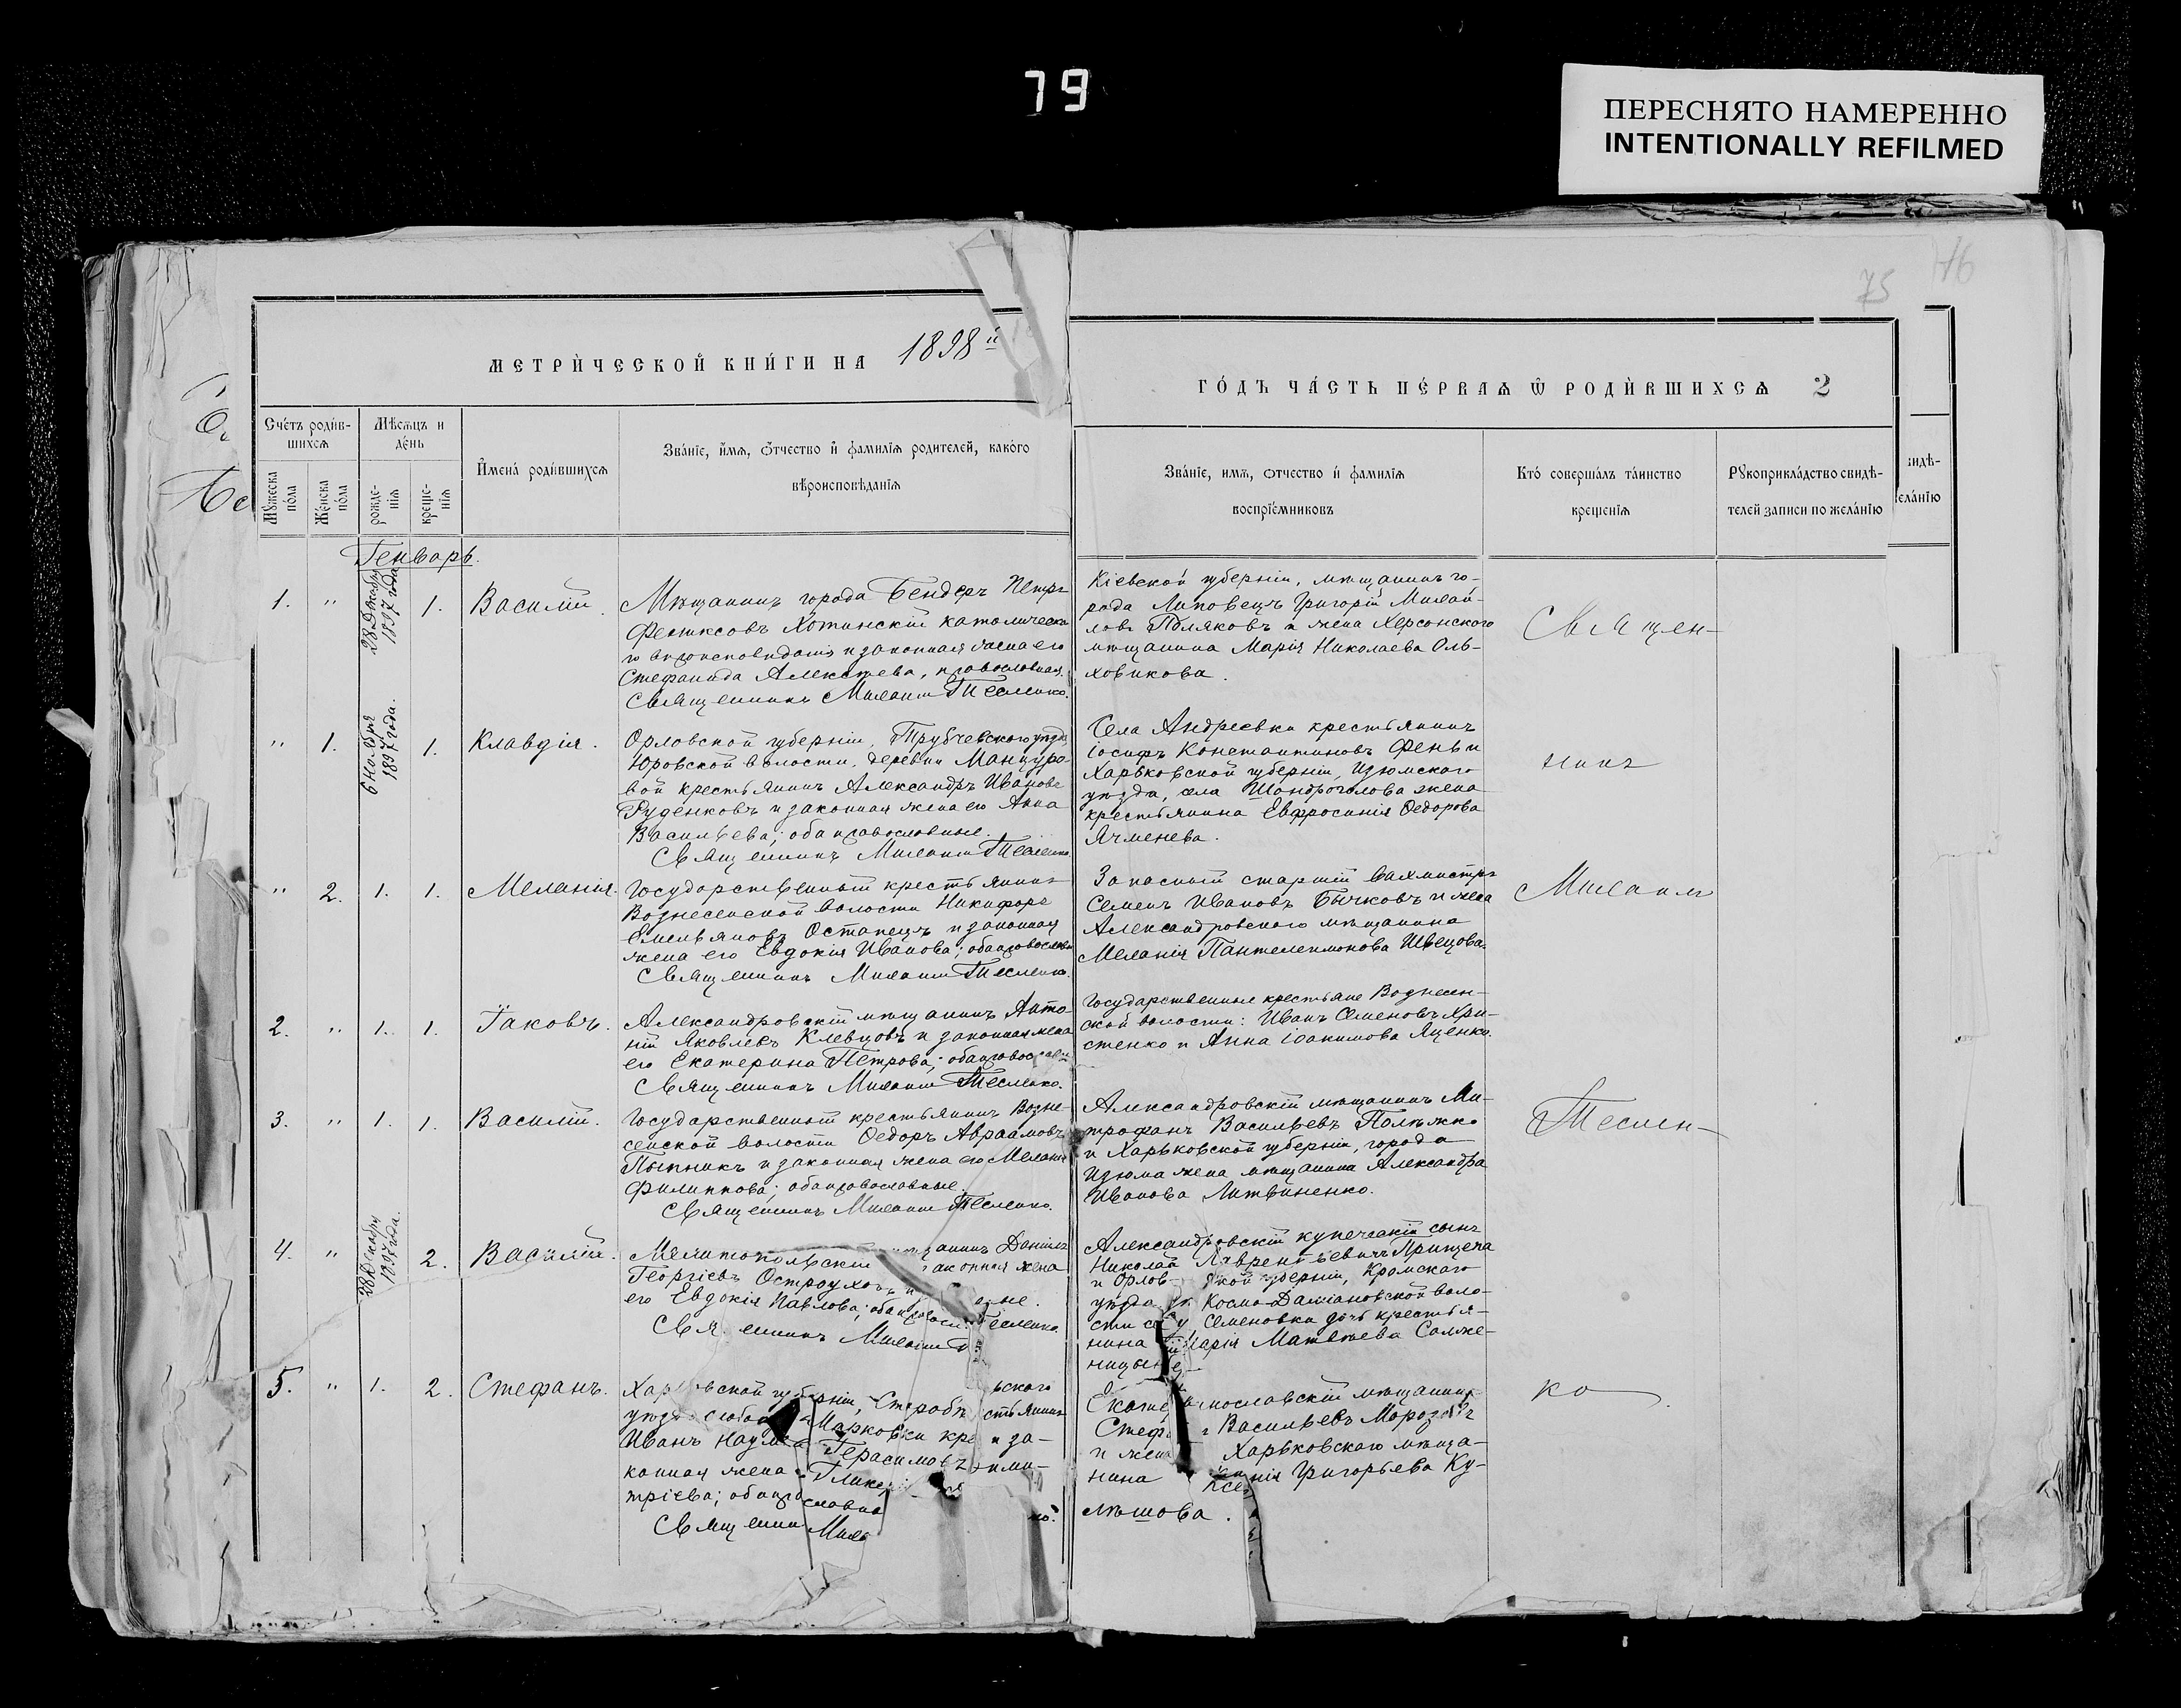 79
ПЕРЕСНЯТО НАМЕРЕННО
INTENTIONALLY REFILMED
75
76
МЕТРИ́ЧЕСКОЙ КНИ́ГИ НА 1898й
ГО́ДЪ ЧА́СТЬ ПЕ́РВАѦ Ѿ РОДИ́ВШИХСѦ 2
Сче́тъ роди́в-
шихсѧ
Мꙋ́жеска по́ла
Же́нска по́ла
Мѣ́сѧцъ и
де́нь
рожде-
нїѧ
креще-
нїѧ
И҆мена́ роди́вшихсѧ
Зва́нїе, и҆́мѧ, ѻ҆́тчество и҆ фамилїѧ родителей, како́го
вѣроисповѣ́данїѧ
Зва́нїе, имѧ, ѻтчество и҆ фамилїѧ
воспрїе́мниковъ
Кто́ соверша́лъ та́инство
креще́нїѧ
Рꙋкоприкла́дство свидѣ-
телей записи по жела́нїю
видѣ-
ела́нїю
Генварь.
1. " 28 Декабря 1897 года 1. Василій.
Мѣщанинъ города Бендеръ Петръ
Феликсовъ Хотинскій католическа-
го вѣроисповѣданія и законная жена его
Стефанида Алексѣева, православная.
Священникъ Михаилъ Тесленко.
Кіевской губерніи, мѣщанинъ го-
рода Липовецъ Григорій Михай-
ловъ Поляковъ и жена Херсонского
мѣщанина Марія Николаева Оль-
ховикова.
Священ-
" 1. 6 Ноября 1897 года. 1. Клавдія.
Орловской губерніи, Трубчевского уѣзда,
Юровской волости, деревни Манцуро-
вой крестьянинъ Александръ Ивановъ
Руденковъ и законная жена его Анна
Васильева; оба православные.
Священникъ Михаилъ Тесленко.
Села Андреевки крестьянинъ
Іосифъ Константиновъ Фень и
Харьковской губерніи, Изюмского
уѣзда, села Шандроголова жена
крестьянина Евфросинія Ѳедорова
Ячменева.
никъ
" 2. 1. 1. Меланія.
Государственный крестьянинъ
Вознесенской волости Никифоръ
Емельяновъ Остапецъ и законная
жена его Евдокія Иванова; оба православн.
Священникъ Михаилъ Тесленко.
Запасный старшій вахмистръ
Семенъ Ивановъ Бычковъ и жена
Александровского мѣщанина
Меланія Пантелеимонова Швецова.
Михаилъ
2. " 1. 1. Іаковъ.
Александровскій мѣщанинъ Анто-
ній Яковлевъ Клевцовъ и законная жена
его Екатерина Петрова; оба православн
Священникъ Михаилъ Тесленко.
Государственные крестьяне Вознесен-
ской волости: Иванъ Семеновъ Хри-
стенко и Анна Іоакимова Яценко.
3. " 1. 1. Василій.
Государственный крестьянинъ Возне-
сенской волости Ѳедоръ Авраамовъ
Пыпникъ и законная жена его Меланія
Филиппова; оба православные.
Священникъ Михаилъ Тесленко.
Александровскій мѣщанинъ Ми-
трофанъ Васильевъ Полежко
и Харьковской губерніи, города
Изюма жена мѣщанина Александра
Иванова Литвиненко.
Теслен-
4. " 28 Декабря 1897 года. 2. Василій.
Мелитопольскій мѣщанинъ Даніилъ
Георгіевъ Остроухо законная жена
его Евдокія Павлова; оба правосл ные.
Свя енникъ Михаилъ Тесленко.
Александровскій купеческій сынъ
Николай Лаврентьевичъ Прищепа
и Орлов ской губерніи, Кромского
уѣзда Космо-Даміановской воло-
сти с Семеновки дочь крестья-
нина Марія Матвѣева Солже-
ницына
5. " 1. 2. Стефанъ.
Харьковской губерніи, Староб ьского
уѣзда слобо Марковки кре стьянинъ
Иванъ Наум Герасимовъ и за-
конная жена Глике ими-
тріева; оба право славны
Священни Миха ко.
Екате инославскій мѣщанинъ
Стеф ъ Васильевъ Морозовъ
и жена Харьковского мѣща-
нина Ксенія Григорьева Ку-
лѣшова.
ко